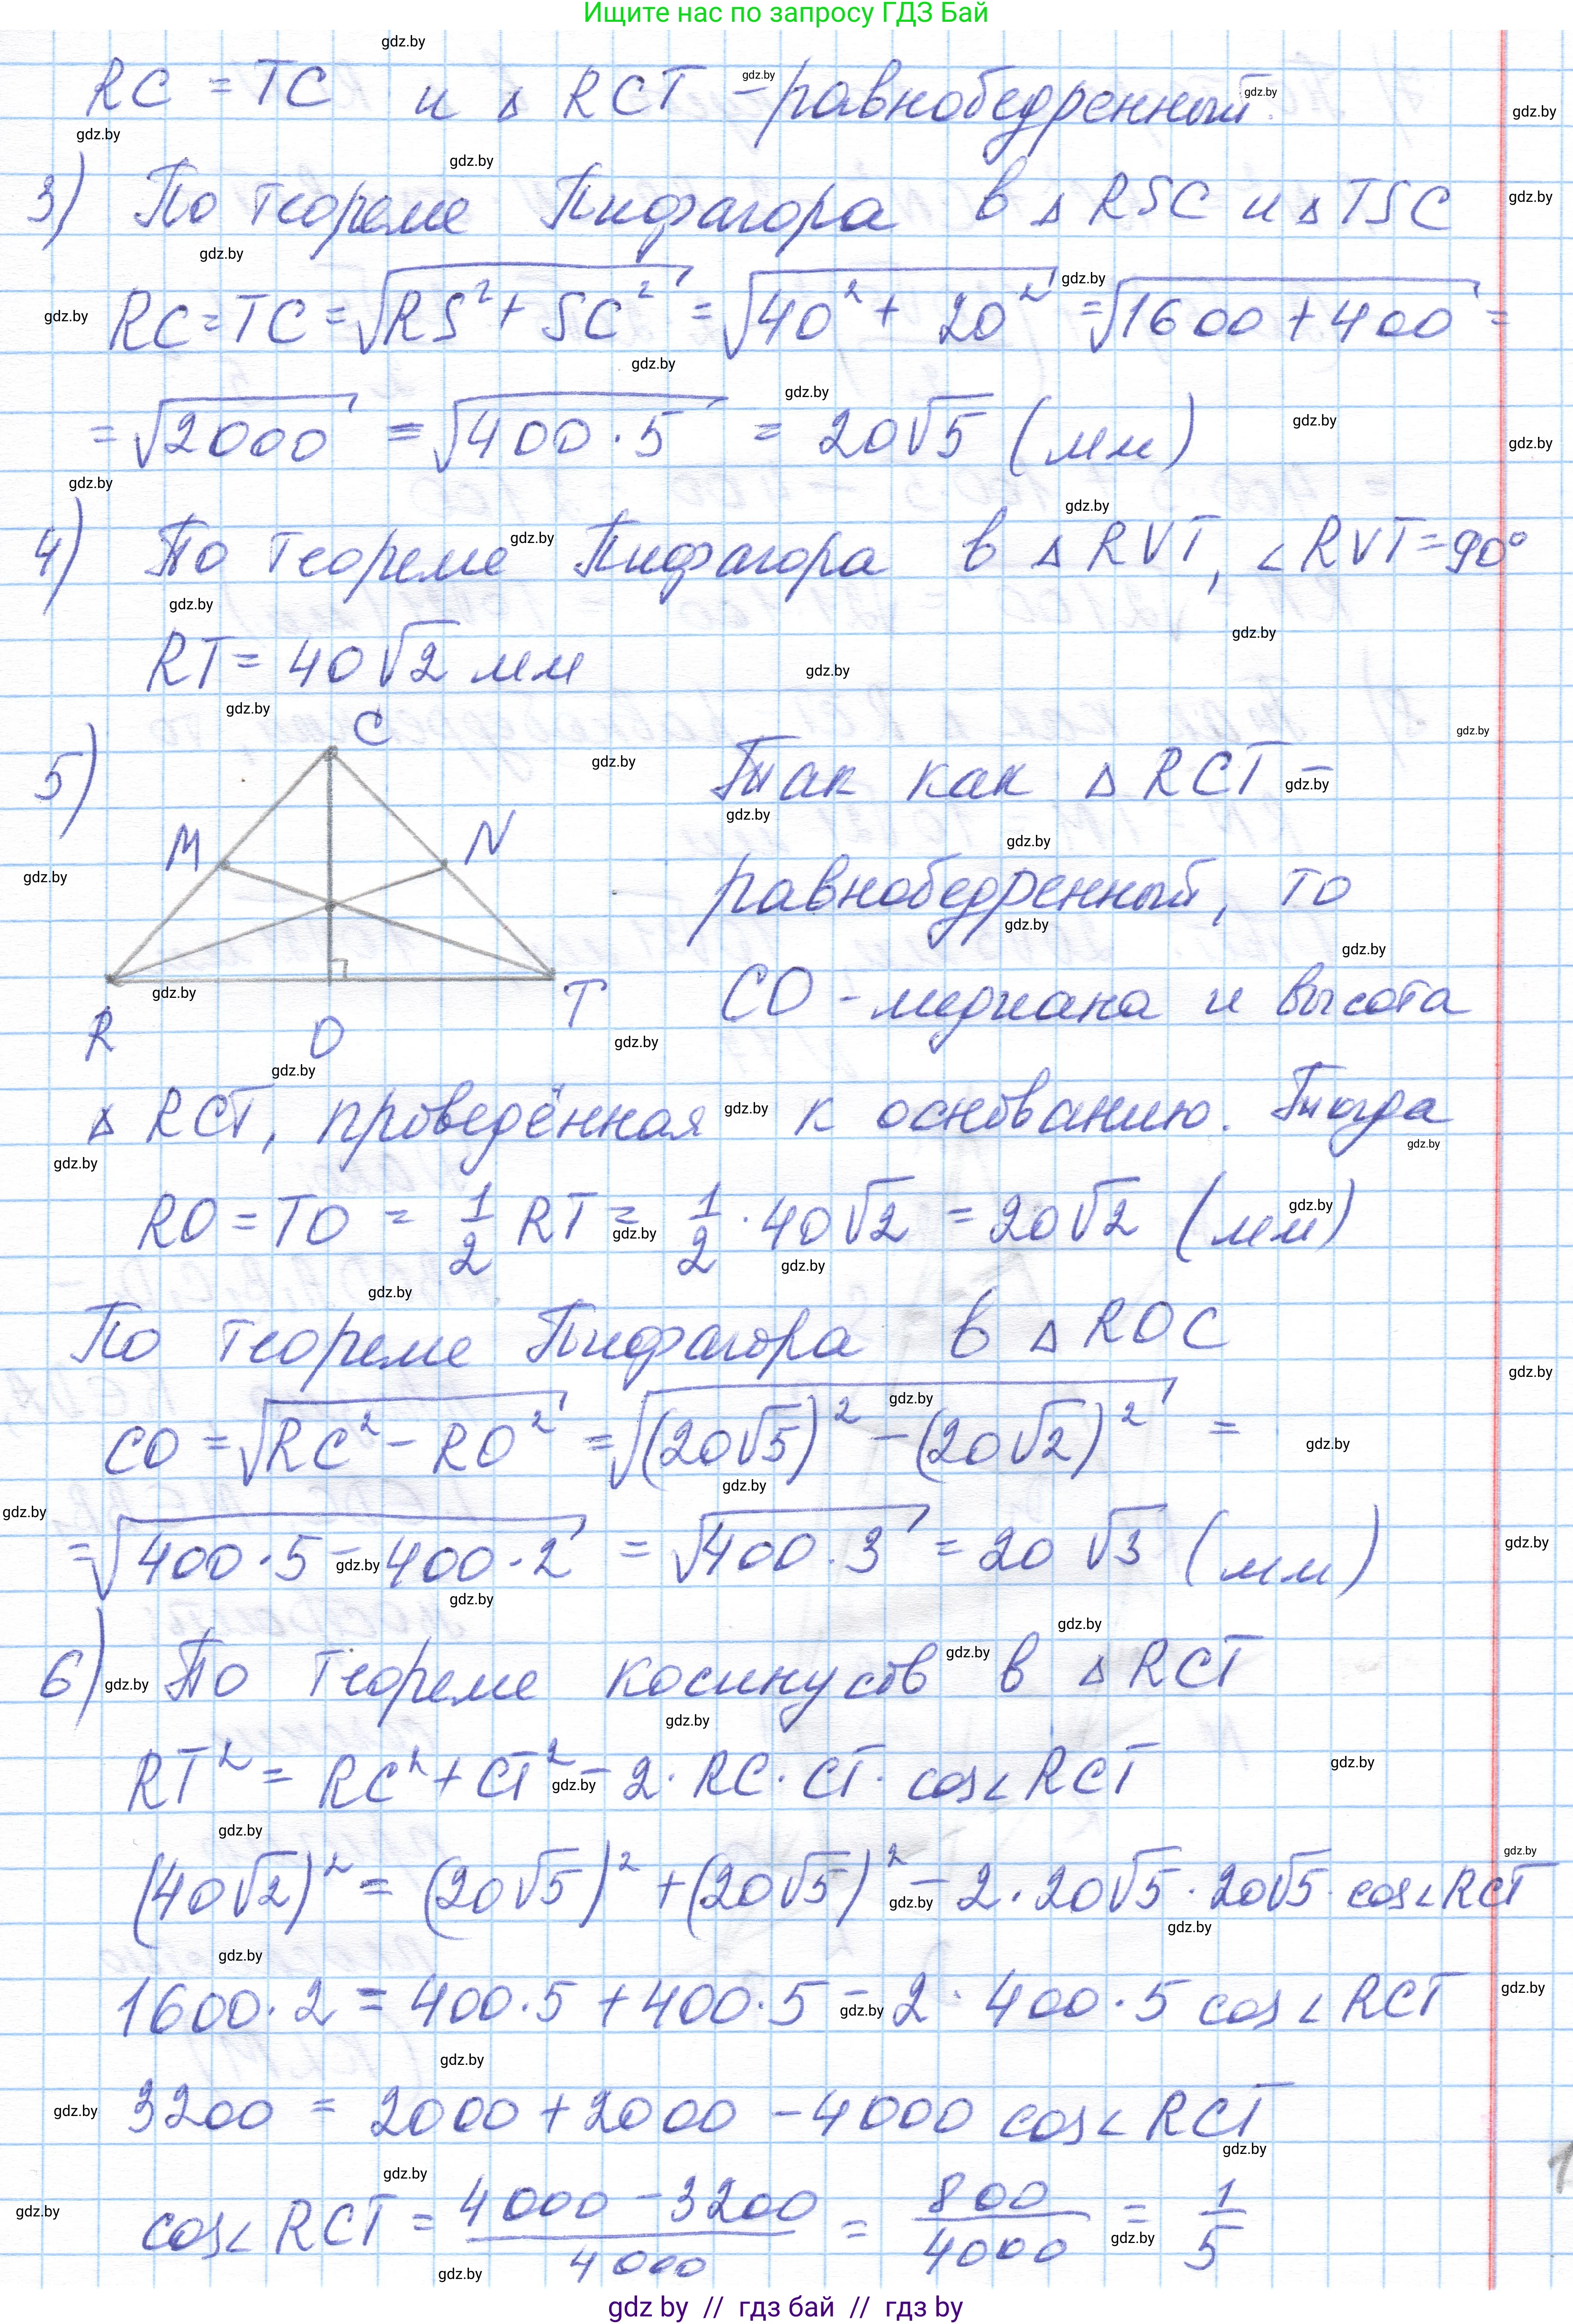 Ищите нас по запросу ГДЗ Бай
RC = TC и △ RCT - равнобедренный.
3) По теореме Пифагора в △ RSC и △ TSC
RC = TC = √(RS² + SC²) = √(40² + 20²) = √(1600 + 400) =
= √2000 = √(400 · 5) = 20√5 (мм)
4) По теореме Пифагора в △ RVT, ∠RVT = 90°
RT = 40√2 мм
5) Так как △ RCT -
равнобедренный, то
CO - медиана и высота
C
M N
R O T
△ RCT, проведённая к основанию. Тогда
RO = TO = 1/2 RT = 1/2 · 40√2 = 20√2 (мм)
По теореме Пифагора в △ ROC
CO = √(RC² - RO²) = √((20√5)² - (20√2)²) =
= √(400 · 5 - 400 · 2) = √(400 · 3) = 20√3 (мм)
6) По теореме косинусов в △ RCT
RT² = RC² + CT² - 2 · RC · CT · cos∠RCT
(40√2)² = (20√5)² + (20√5)² - 2 · 20√5 · 20√5 · cos∠RCT
1600 · 2 = 400 · 5 + 400 · 5 - 2 · 400 · 5 cos∠RCT
3200 = 2000 + 2000 - 4000 cos∠RCT
cos∠RCT = (4000 - 3200)/4000 = 800/4000 = 1/5
gdz by // гдз бай // gdz by